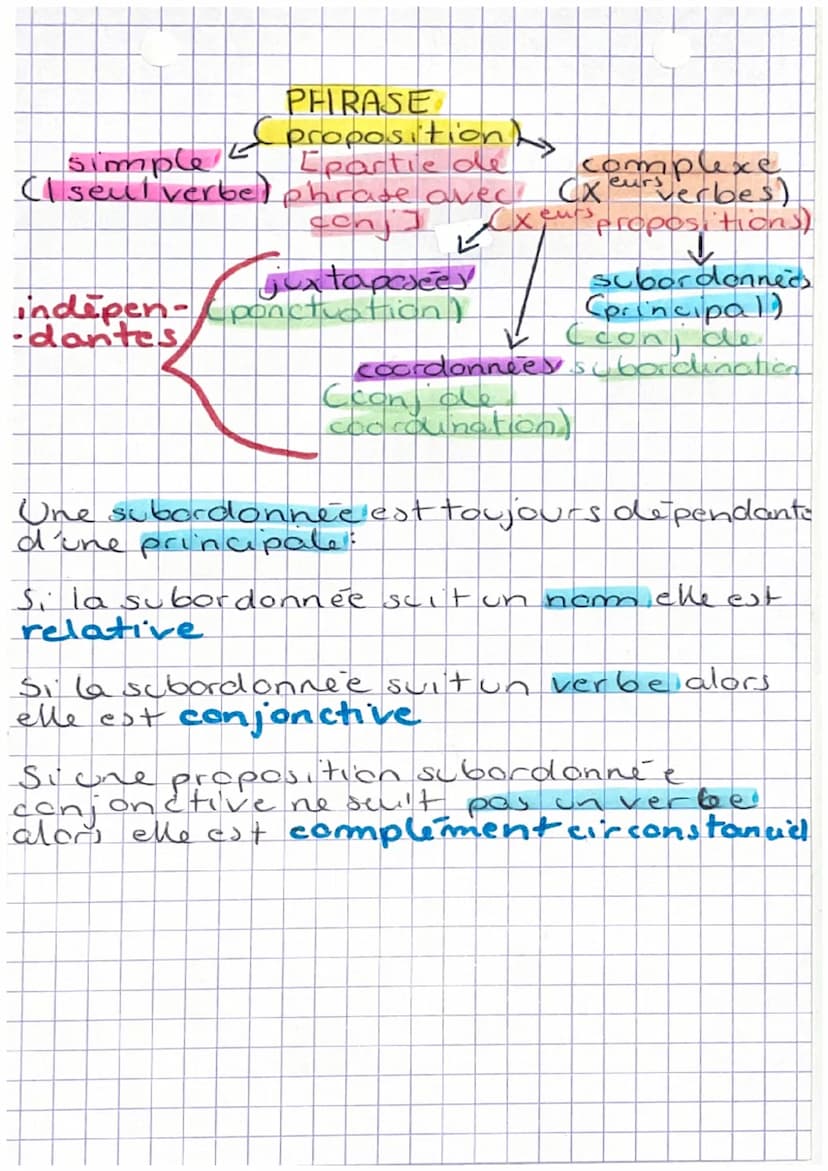 PHRASE
(proposition)
simple [partie de complexe
(1 seul verbe) phrase avec (x eurs verbes)
conj] (x eurs propositions)
juxtaposées subordonnées
indépen- (ponctuation) (principal)
-dantes (conj de
coordonnées subordination
(conj de
coordination)
Une subordonnée est toujours dépendante
d'une principale:
Si la subordonnée suit un nom elle est
relative
Si la subordonnée suit un verbe alors
elle est conjonctive
Si une proposition subordonnée
conjonctive ne suit pas un verbe
alors elle est complément circonstanciel